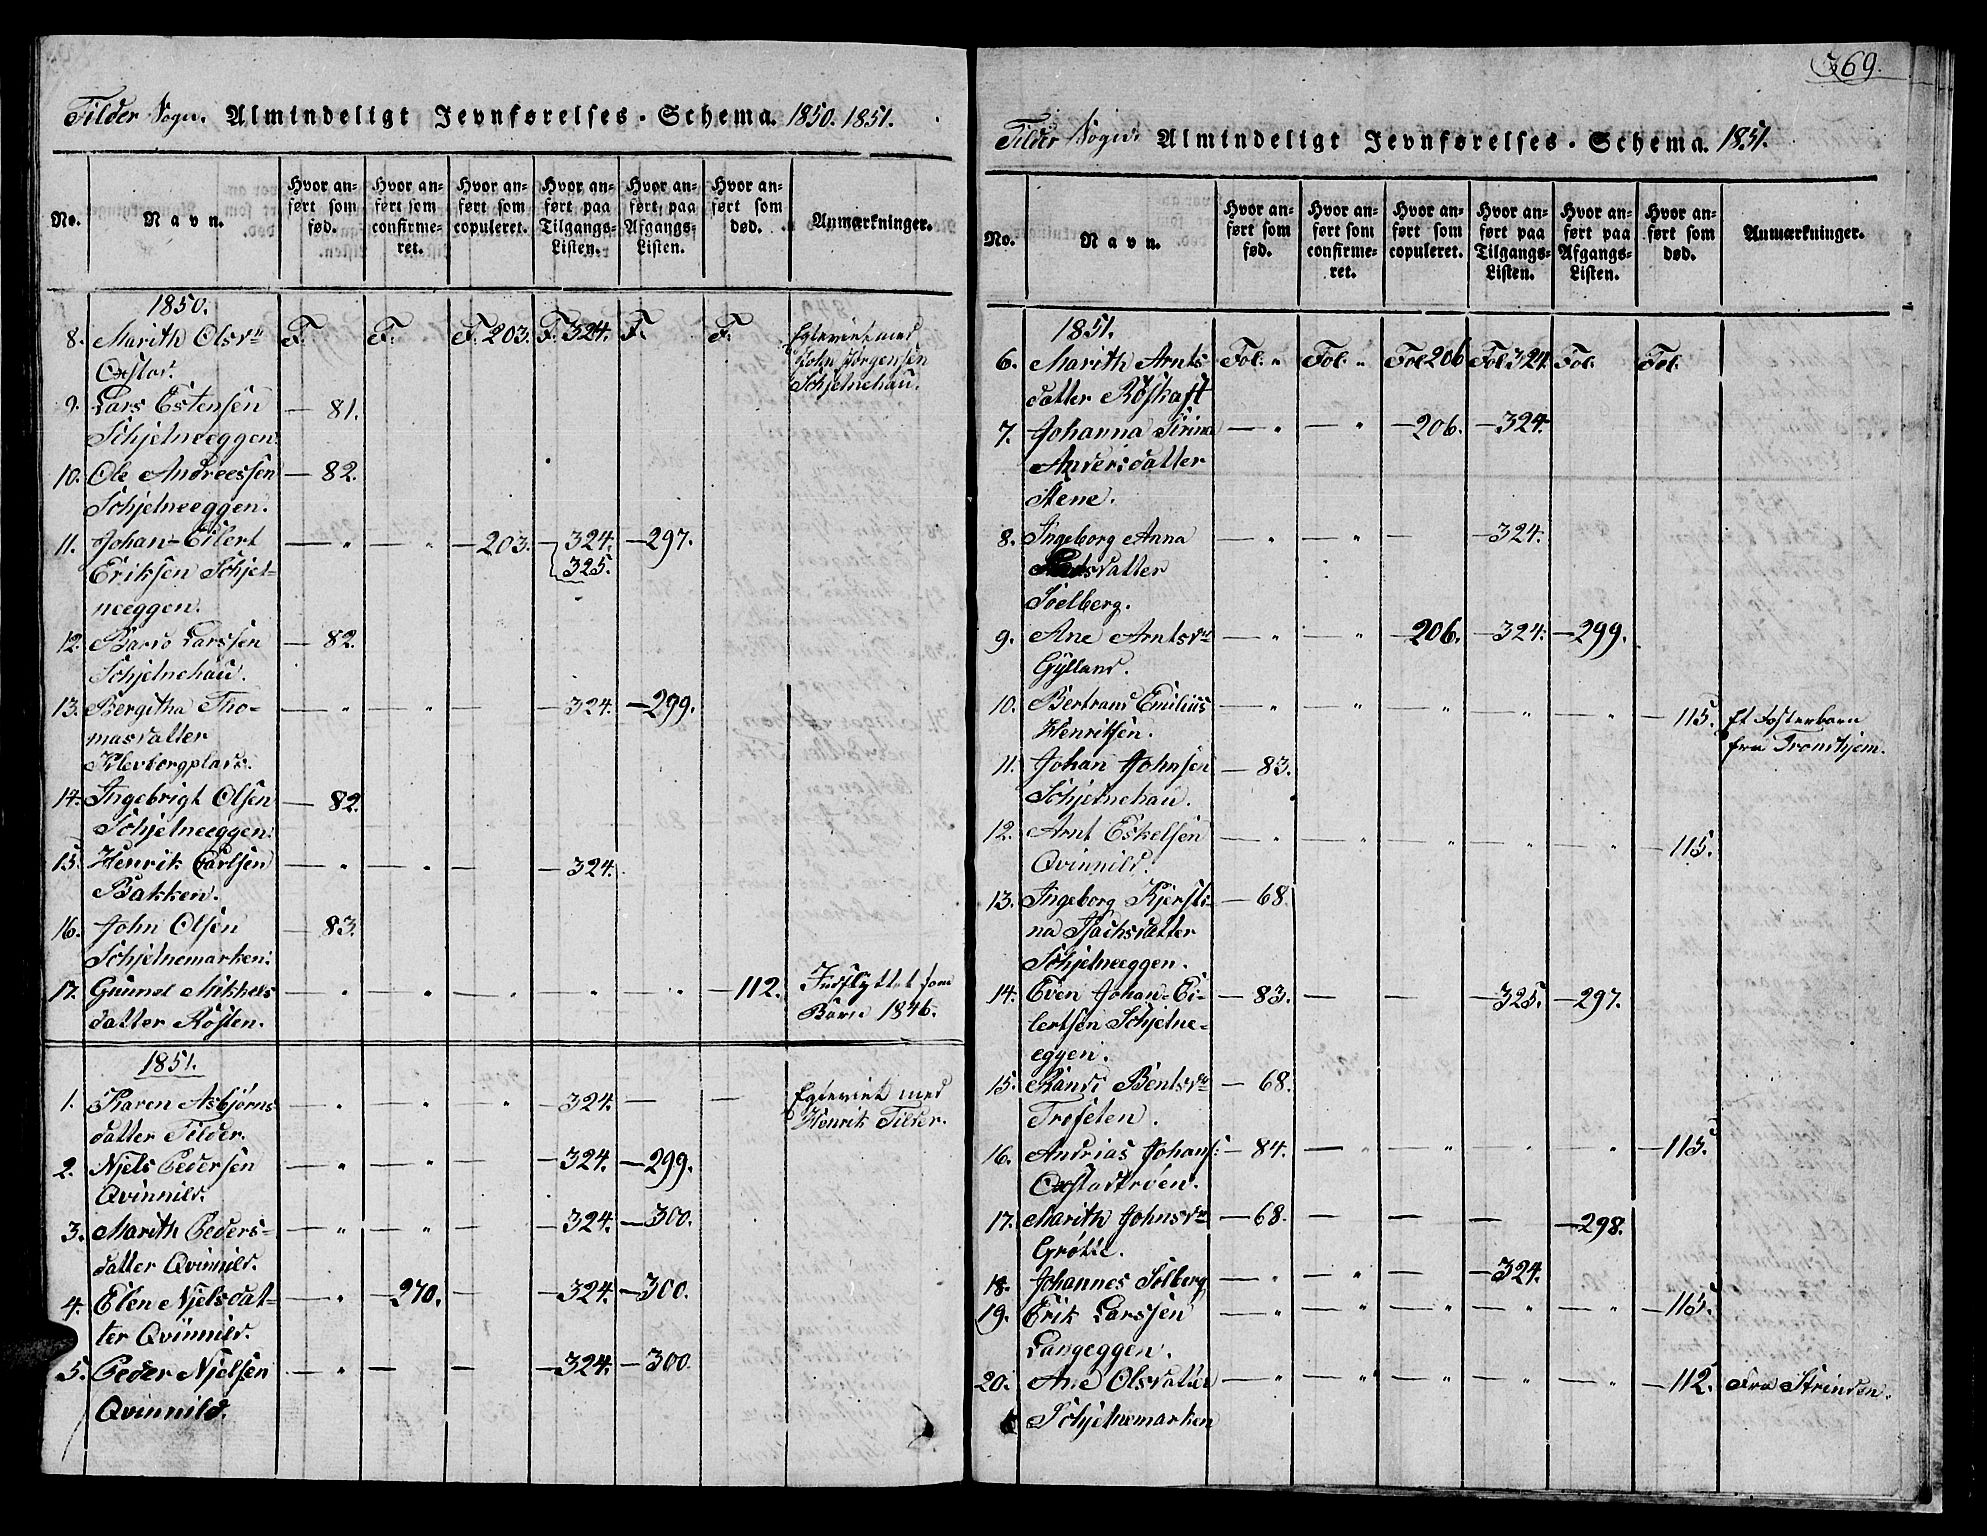 Tilder Sogn. Almindeligt Jevnførelses-Schema. 1850. 1851.
No. Navn. Hvor anført som fød. Hvor anført som confirmeret. Hvor anført som copuleret. Hvor anført paa Tilgangs-Listen. Hvor anført paa Afgangs-Listen. Hvor anført som død. Anmærkninger.
1850.
8. Marith Olsdr F. F. F. 203. F. 324. F. F. Egteviet med
Oxstad. John Jørgensen
Schjelnehau.
9. Lars Estensen — 81.
Schjelneeggen.
10. Ole Andreessen — 82.
Schjelneeggen.
11. Johan-Eilert — " — " — 203. — 324. — 297.
Eriksen Schjel- 325.
neeggen.
12. Baro Larssen — 82.
Schjelnehau.
13. Bergitha Tho- — " — " — — 324. — 299.
masdatter
Klevborgplads.
14. Ingebrigt Olsen — 82.
Schjelneeggen.
15. Henrik Carlsen — " — " — — 324.
Bakken.
16. John Olsen — 83.
Schjelnemarken.
17. Gunnel Mikkels — " — " — " — " — " — 112. Indflyttet som
datter Røsten. Barn 1846.
1851.
1. Karen Asbjørns — " — " — " — 324. — — Egteviet med
datter Tilder. Henrik Tilder.
2. Njels Pedersen — " — " — — 324. — 299.
Qvinnild.
3. Marith Peders- — " — " — — 324. — 300.
datter Qvinnild.
4. Elen Njelsdat- — " — 270. — — 324. — 300.
ter Qvinnild.
5. Peder Njelsen — " — — — 324. — 300.
Qvinnild.
369.
Tilder Sogn. Almindeligt Jevnførelses-Schema. 1851.
No. Navn. Hvor anført som fød. Hvor anført som confirmeret. Hvor anført som copuleret. Hvor anført paa Tilgangs-Listen. Hvor anført paa Afgangs-Listen. Hvor anført som død. Anmærkninger.
1851.
6. Marith Arnts- Fol. " Fol. " Fol 206 Fol 324. Fol. Fol.
datter Røskaft
7. Johanna Sirina — " — " — 206. — 324.
Andersdatter
Stene.
8. Ingeborg Anna — " — " — — 324.
datter
Soelberg.
9. Ane Arntsdr — " — " — 206. — 324. — 299.
Gylland.
10. Bertrand Emilius — " — " — " — " — " — 115. Et Fosterbarn
Henriksen. fra Trondhjem.
11. Johan Johnsen — 83.
Schjelnehau.
12. Arnt Eskelsen — " — " — " — " — " — 115.
Qvinnild.
13. Ingeborg Kjersti- — 68.
na Isachsdatter
Schjelneeggen.
14. Even Johan-Ei- — 83. — — — 325. — 297.
lertsen Schjelne-
eggen.
15. Randi Bentsdr — 68.
Trøseten.
16. Andrias Johans: — 84. — " — " — " — " — 115.
Oxstadtrøen.
17. Marith Johnsdr — 68. — — — — 298.
Grøtte.
18. Johannes Solberg — " — " — — 324.
19. Erik Larssen — " — " — " — " — " — 115.
Langeggen.
20. Ane Olsdatter — " — " — " — " — " — 112. Fra Strinden.
Schjelnemarken